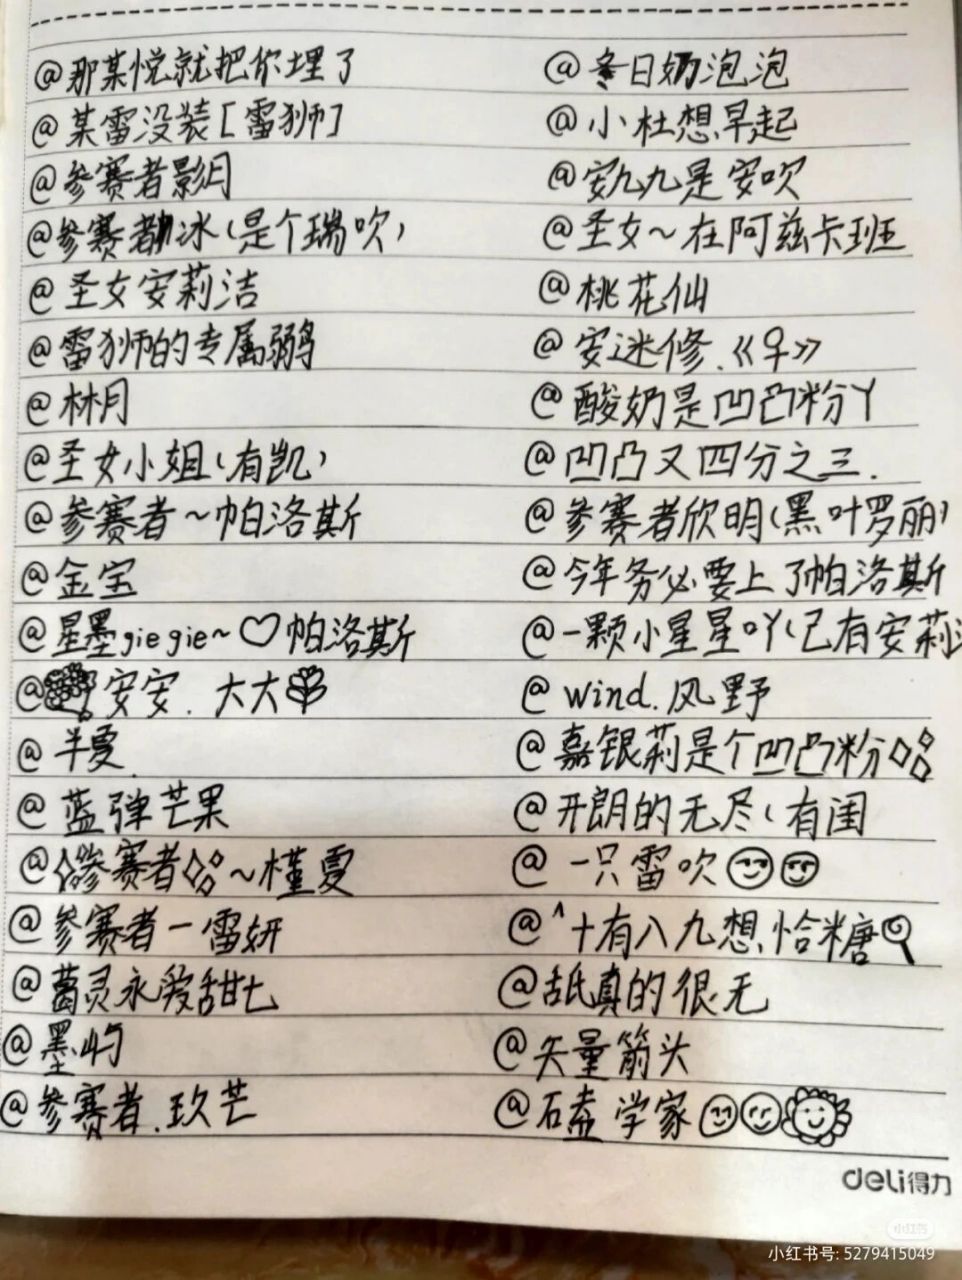 @那某悦就把你埋了
@某雷没装[雷狮]
@参赛者影月
@参赛者冰(是个瑞吹)
@圣女安莉洁
@雷狮的专属弼鸟
@林月
@圣女小姐(有凯)
@参赛者~帕洛斯
@金宝
@星墨giegie~♡帕洛斯
@安安.大大
@半夏.
@蓝弹芒果
@参赛者~槿夏
@参赛者一雷妍
@葛灵永爱甜七
@墨屿
@参赛者.玖芒
@冬日奶泡泡
@小杜想早起
@安九九是安吹
@圣女~在阿兹卡班
@桃花仙
@安迷修.《♀》
@酸奶是凹凸粉丫
@凹凸又四分之三.
@参赛者欣明(黑叶罗丽)
@今年务必要上了帕洛斯
@一颗小星星吖(已有安莉洁
@wind.风野
@嘉银莉是个凹凸粉
@开朗的无尽(有闺
@一只雷吹
@^十有八九想恰糖
@舐真的很无
@矢量箭头
@嗑学家
deli得力
小红书
小红书号: 5279415049